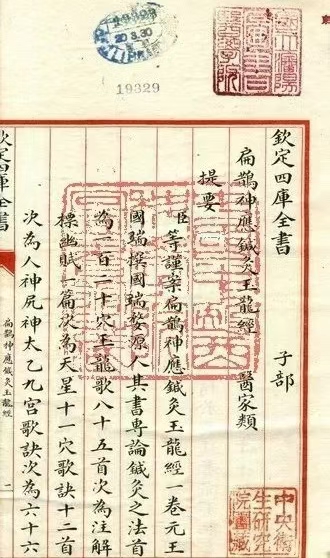 欽定四庫全書　　　子部
扁鵲神應鍼灸玉龍經　醫家類
提要
臣等謹案扁鵲神應鍼灸玉龍經一卷元王
國瑞撰國瑞婺源人其書專論鍼灸之法首
為一百二十穴玉龍歌八十五首次為注解
標幽賦一篇次為天星十一穴歌訣十二首
次為人神尻神太乙九宮歌訣次為六十六
欽定四庫全書
扁鵲神應鍼灸玉龍經
19329
20 3.30
中央衛
生研究
院圖藏